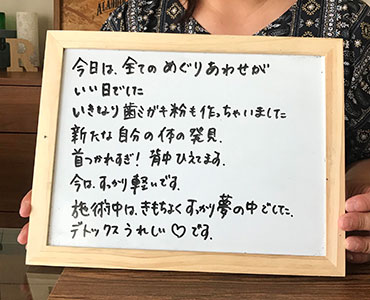 今日は、全てのめぐりあわせが
いい日でした
いきなり歯ミガキ粉も作っちゃいました
新たな自分の体の発見.
首つかれすぎ! 背中ひえてます.
今は、すっかり軽いです.
施術中は、きもちよくすっかり夢の中でした.
デトックスうれしい♡です.